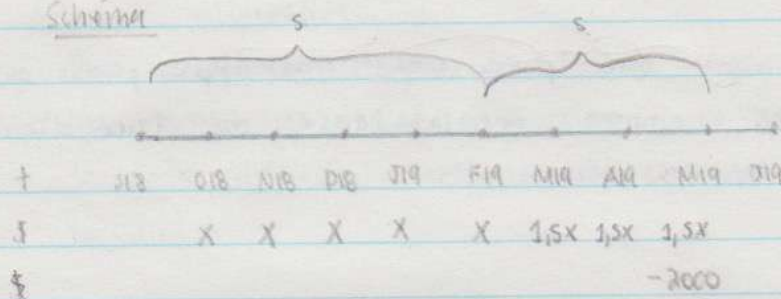 Schéma
s s
t S18 O18 N18 D18 J19 F19 M19 A19 M19 J19
$ X X X X X 1,5X 1,5X 1,5X
$ -2000